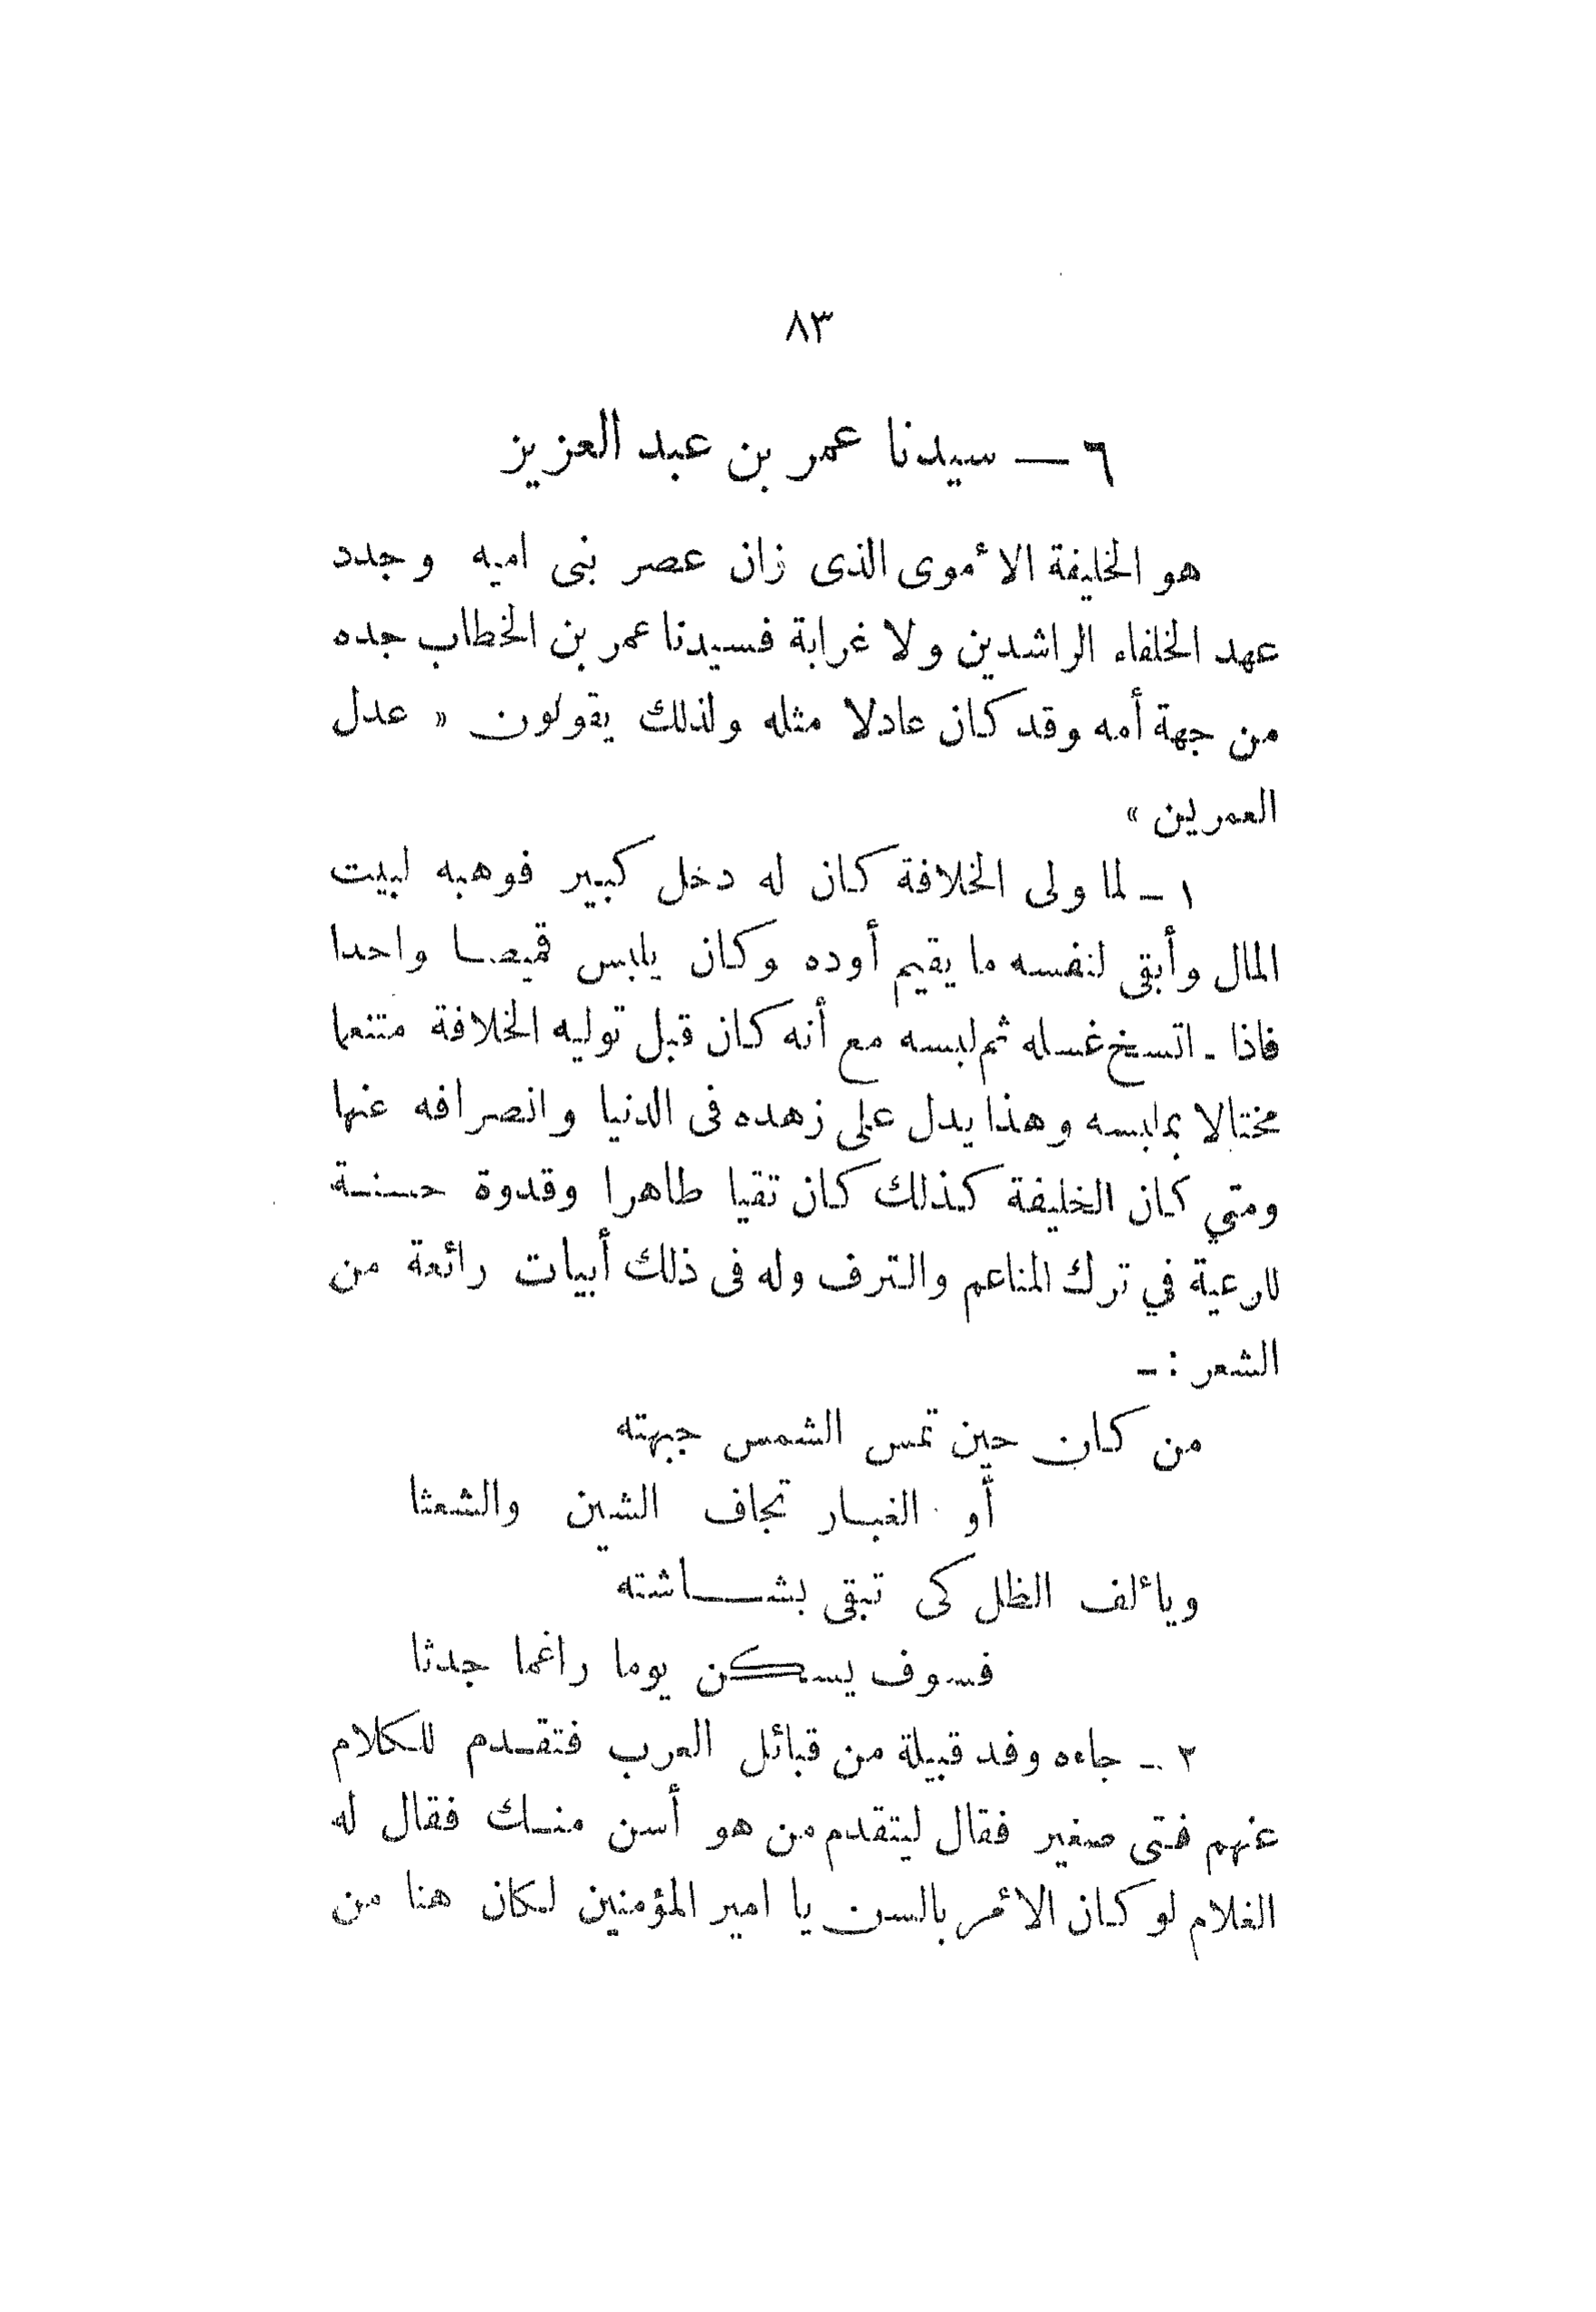 ٨٣
٦ — سيدنا عمر بن عبد العزيز
هو الخليفة الأموى الذى زان عصر بنى اميه وجدد
عهد الخلفاء الراشدين ولا غرابة فسيدنا عمر بن الخطاب جده
من جهة أمه وقد كان عادلا مثله ولذلك يقولون « عدل
العمرين »
١ - لما ولى الخلافة كان له دخل كبير فوهبه لبيت
المال وأبقى لنفسه ما يقيم أوده وكان يلبس قميصا واحدا
فاذا - اتسخ غسله ثم لبسه مع أنه كان قبل توليه الخلافة متنعما
مختالا بملبسه وهذا يدل على زهده فى الدنيا وانصرافه عنها
ومتي كان الخليفة كذلك كان تقيا طاهرا وقدوة حسنة
للرعية في ترك المناعم والترف وله فى ذلك أبيات رائعة من
الشعر : -
من كان حين تمس الشمس جبهته
أو الغبار تجاف الشين والشعثا
ويألف الظل كى تبقى بشاشته
فسوف يسكن يوما راغما جدثا
٢ - جاءه وفد قبيلة من قبائل العرب فتقدم للكلام
عنهم فتى صغير فقال ليتقدم من هو أسن منك فقال له
الغلام لو كان الأمر بالسن يا امير المؤمنين لكان هنا من